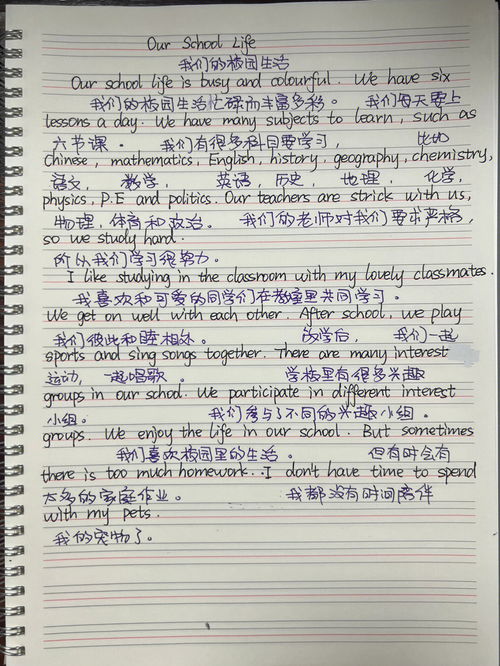 Our School Life
我们的校园生活
Our school life is busy and colourful. We have six
我们的校园生活忙碌而丰富多彩。 我们每天要上
lessons a day. We have many subjects to learn, such as
六节课。 我们有很多科目要学习, 比如
Chinese, mathematics, English, history, geography, chemistry,
语文, 数学, 英语, 历史, 地理, 化学,
physics, P.E and politics. Our teachers are strick with us,
物理, 体育和政治。 我们的老师对我们要求严格,
so we study hard.
所以我们学习很努力。
I like studying in the classroom with my lovely classmates.
我喜欢和可爱的同学们在教室里共同学习。
We get on well with each other. After school, we play
我们彼此和睦相处。 放学后, 我们一起
sports and sing songs together. There are many interest
运动, 一起唱歌。 学校里有很多兴趣
groups in our school. We participate in different interest
小组。 我们参与不同的兴趣小组。
groups. We enjoy the life in our school. But sometimes
我们喜欢校园里的生活。 但有时会有
there is too much homework. I don't have time to spend
太多的家庭作业。 我都没有时间陪伴
with my pets.
我的宠物了。